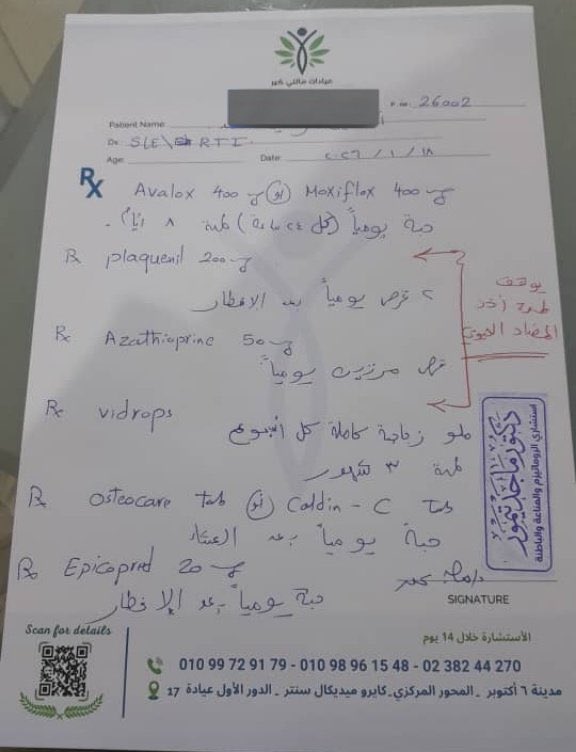 عيادات هالثي كير
P. no: 26002
Patient Name:
Dx SLE \ RTI
Age: Date: ٢٠٢٦ / ١ / ١٨
Rx Avalox 400 mg أو Moxiflox 400 mg
حبة يومياً (كل ٢٤ ساعة) لمدة ٨ أيام.
Rx plaquenil 200 mg
٢ قرص يومياً بعد الافطار
يوقف
لمدة أخذ
المضاد الحيوي
Rx Azathioprine 50 mg
قرص مرتين يومياً
Rx vidrops
ملو زجاجة كاملة كل اسبوع
لمدة ٣ شهور
Rx Osteocare tab أو Caldin - C Tab
حبة يومياً بعد العشاء
Rx Epicopred 20 mg
حبة يومياً بعد الإفطار
دكتور ماجد تيمور
استشاري الروماتيزم والمناعة والباطنة
SIGNATURE
Scan for details
الأستشارة خلال 14 يوم
010 99 72 91 79 - 010 98 96 15 48 - 02 382 44 270
مدينة ٦ أكتوبر _ المحور المركزي _ كايرو ميديكال سنتر _ الدور الأول عيادة 17